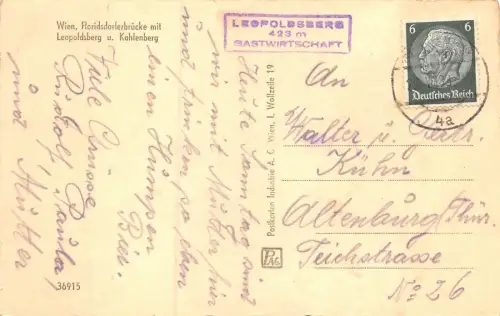 Wien, Floridsdorferbrücke mit
Leopoldsberg u. Kahlenberg
LEOPOLDSBERG
423 m
GASTWIRTSCHAFT
6 6
Deutsches Reich
4a
Heute Sonntag sind
wir mit Mutter hier
und trinken so eben
einen Humpen
Bier.
Viele Grüsse
Rudolf, Paula,
und Mutter
Postkarten Industrie A. G. Wien, I. Wollzeile 19
PIAG
An
Walter u. Gertr.
Kühn
Altenburg/Thür.
Teichstrasse
No 26
36915